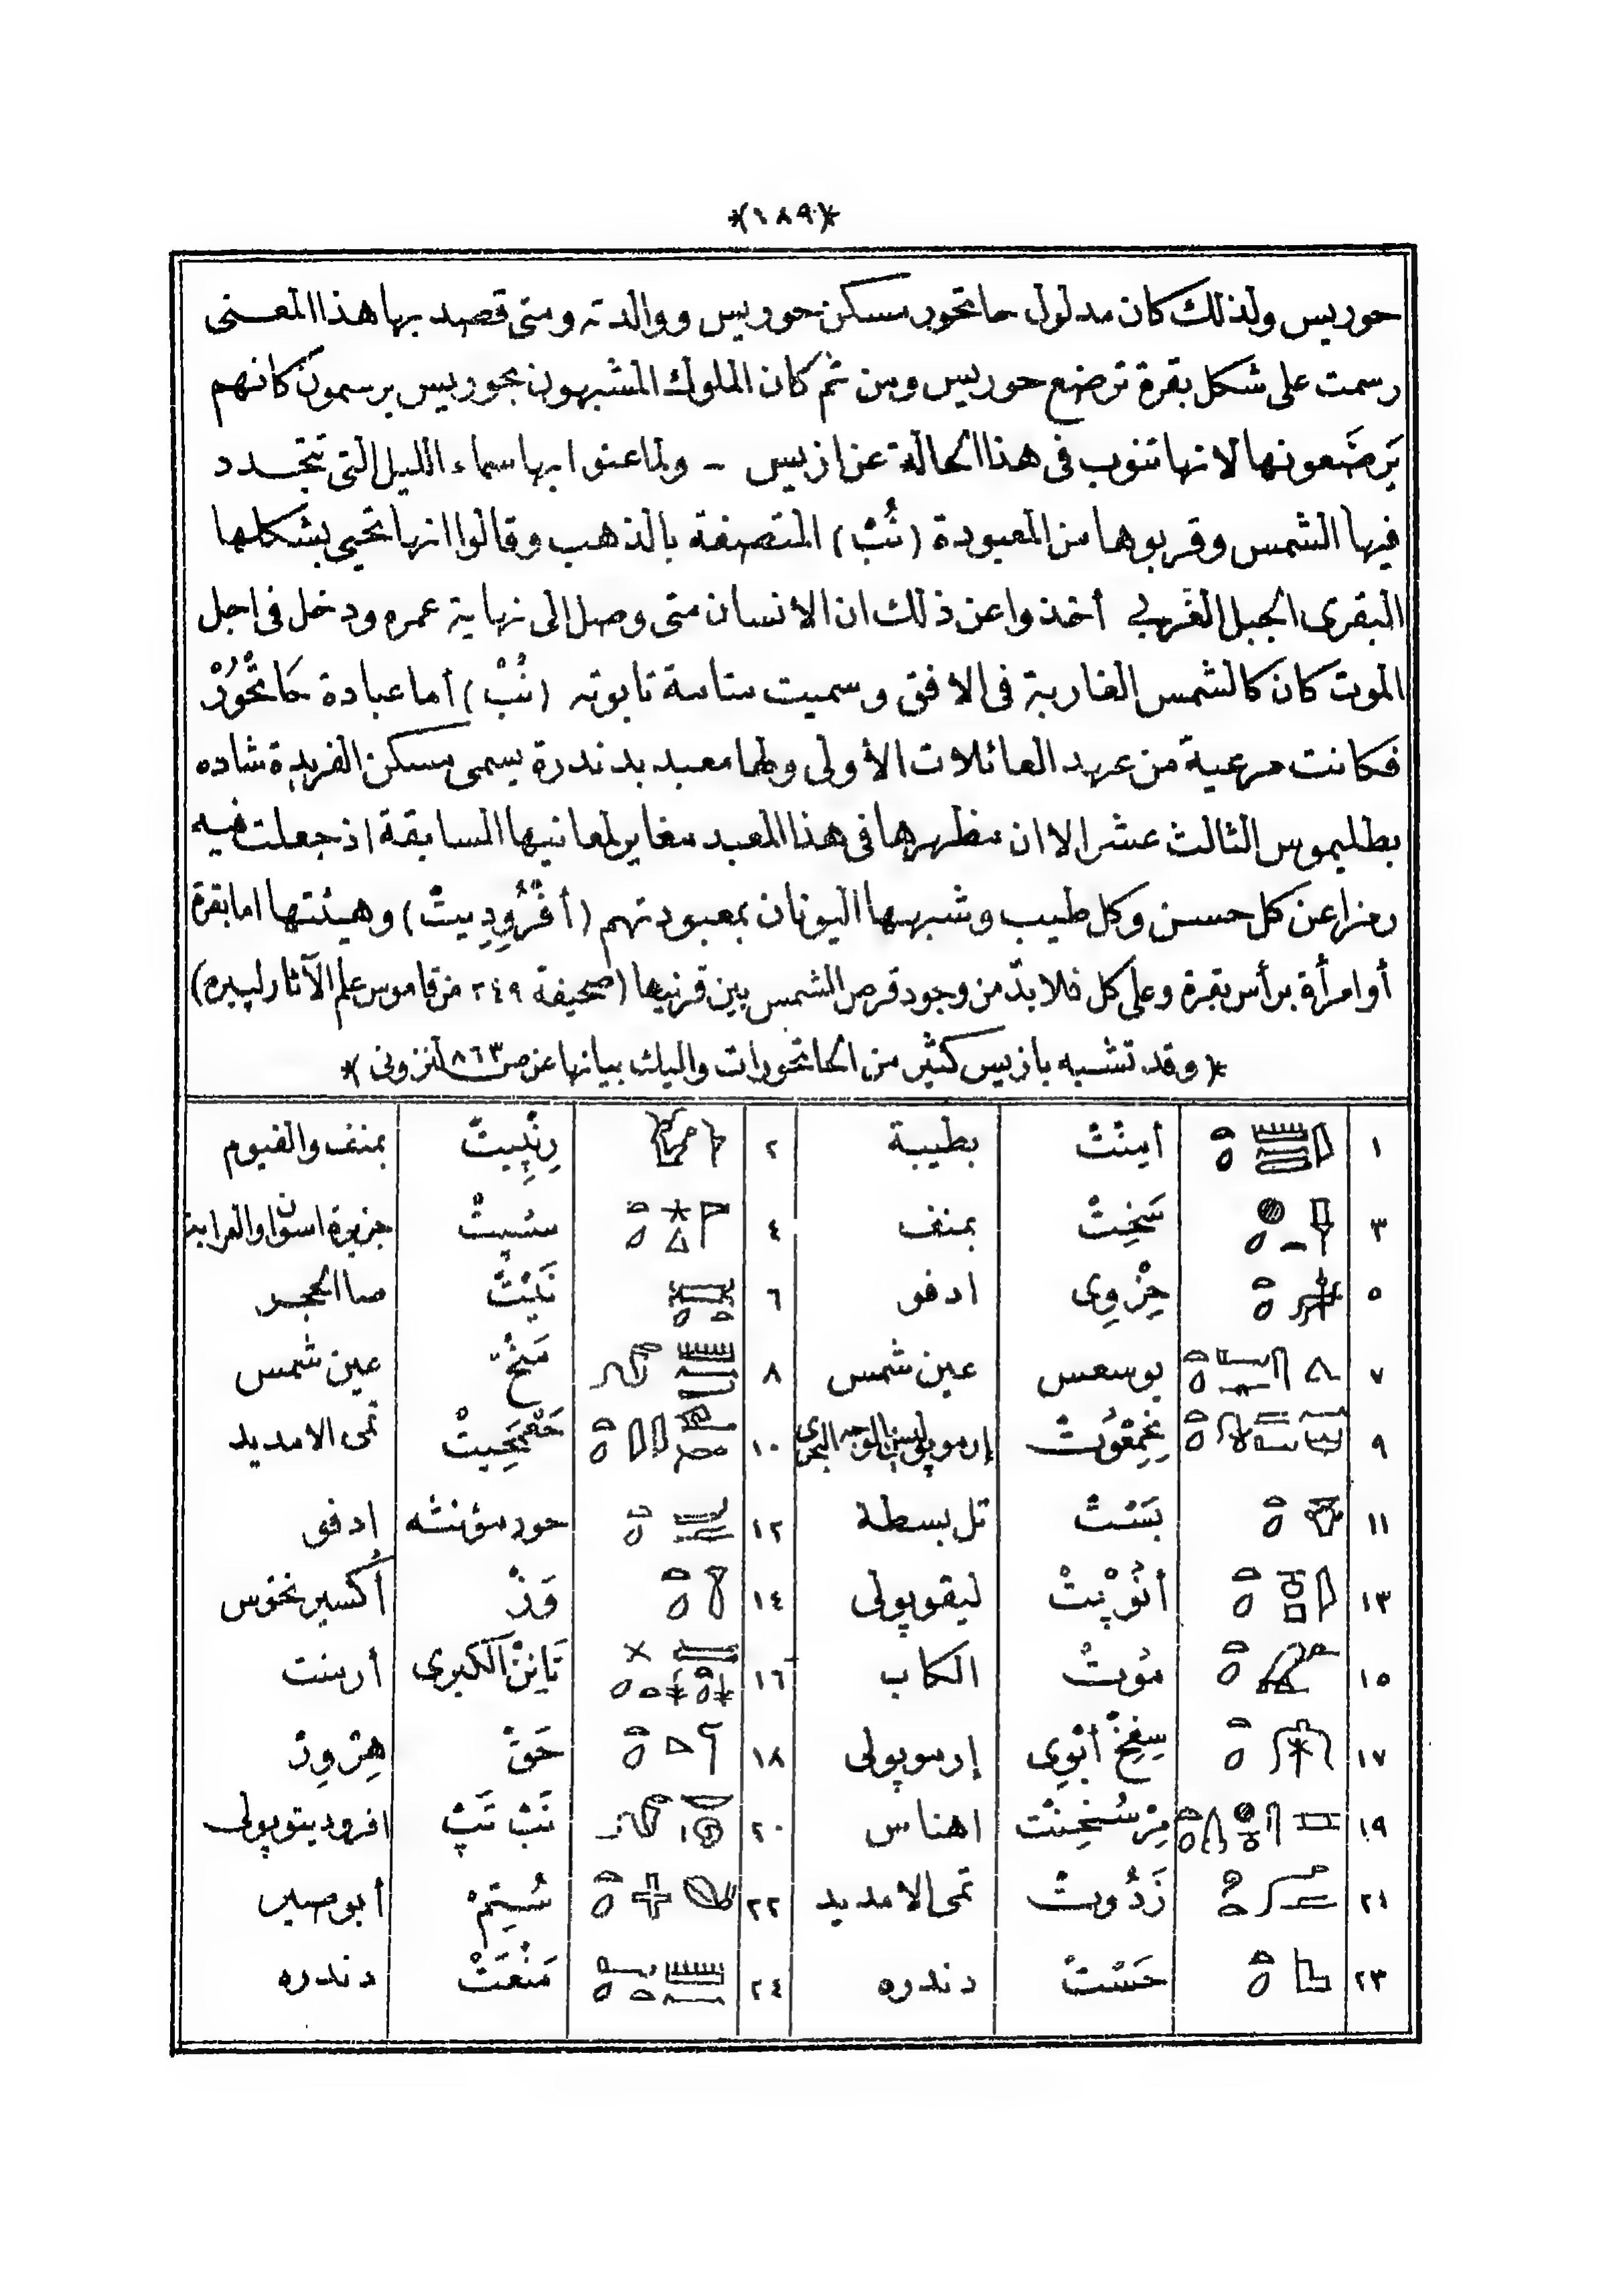 *(١٨٩)*
حوريس ولذلك كان مدلول حاتحور مسكن حوريس ووالدته ومتى قصد بها هذا المعنى
رسمت على شكل بقرة ترضع حوريس ومن ثم كان الملوك المشبهون بحوريس يرسمون كانهم
يَرضَعونها لانها تنوب فى هذا الحالة عن ازيس - ولما عنوا بها سماء الليل التى تتجدد
فيها الشمس وقربوها من المعبودة (نُبْ) المتصفة بالذهب وقالوا انها تحيى بشكلها
البقرى الجبل الغربي أخذوا عن ذلك ان الانسان متى وصل الى نهاية عمره ودخل فى اجل
الموت كان كالشمس الغاربة فى الافق وسميت ستاسة تابوته (نُبْ) أما عبادة حَاتْحُورْ
فكانت مرعية من عهد العائلات الأولى ولها معبد بدندرة يسمى مسكن الفريدة شاده
بطليموس الثالث عشر الا ان مظهرها فى هذا المعبد مغاير لمعانيها السابقة اذ جعلت فيه
رمزا عن كل حسن وكل طيب وشبهها اليونان بمعبودتهم (أفْرُودِيتْ) وهيئتها اما بقرة
أو امرأة برأس بقرة وعلى كل فلا بدّ من وجود قرص الشمس بين قرنيها (صحيفة ٢٤٩ من قاموس علم الآثار لپيره)
*(وقد تشبه بازيس كثير من الحاتحورات واليك بيانها عن ص ٨٦٣ لنزونى)*
١ أمِنْتْ بطيبة ٢ رِنْپِيتْ بمنف والفيوم
٣ سَخِتْ بمنف ٤ ستيتْ جزيرة اسوان والعرابة
٥ حِزْوِى ادفو ٦ نَيْتْ صا الحجر
٧ يوسعس عين شمس ٨ عين شمس
٩ نِحِمْعُوتْ ١٠ حَمْحِيتْ تمى الامديد
١١ بَسْتْ تل بسطة ١٢ ادفو
١٣ أنُوْپِتْ ليقوپولى ١٤ وَزْ أكسيرنخوس
١٥ مُوتْ الكاب ١٦ الكبرى أرمنت
١٧ سِفِخْ أبْوِى إرموپولى ١٨ حَقْ
١٩ مِرْسُخِنْتْ اهناس ٢٠ نَبْ تَپْ افروديتوپولى
٢١ زَدُوتْ تمى الامديد ٢٢ سُتِمْ أبوصير
٢٣ حَسْتْ دندره ٢٤ مَنْعَتْ دندره